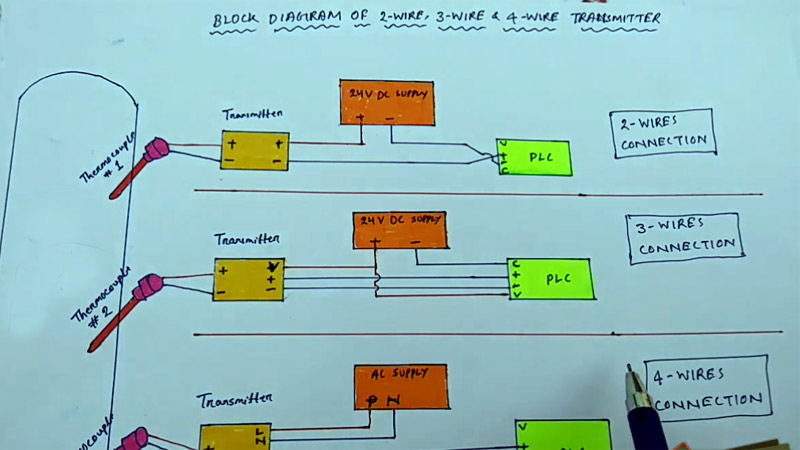 BLOCK DIAGRAM OF 2-WIRE, 3-WIRE & 4-WIRE TRANSMITTER
24V DC SUPPLY
+ −
Transmitter
+ +
− −
Thermocouple
# 1
PLC
2-WIRES
CONNECTION
24V DC SUPPLY
+ −
Transmitter
+ V
+
− −
Thermocouple
# 2
C
+
−
V
PLC
3-WIRES
CONNECTION
AC SUPPLY
P N
Transmitter
+
V
4-WIRES
CONNECTION